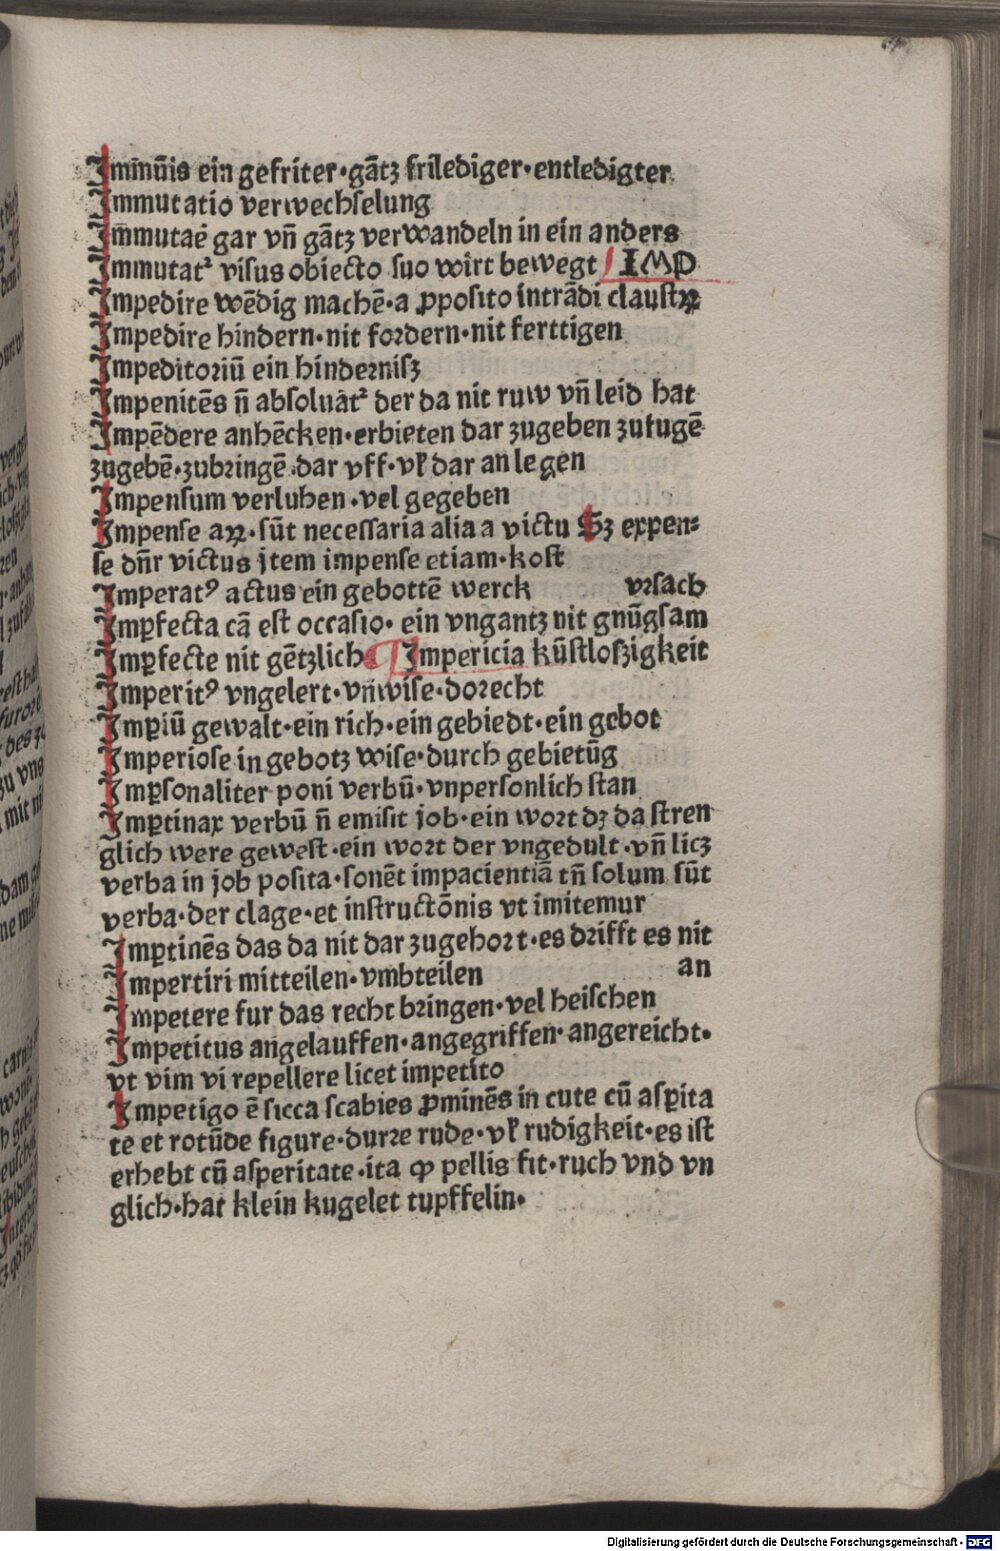 Iminūis ein gefriter·gātz frilediger·entledigter
Immutatio verwechſelung
Im̄mutaē gar vn̄ gātz verwandeln in ein anders
Immutatᷣ viſus obiecto ſuo wirt bewegt IMP
Impedire wēdig machē·a ꝓpoſito intrādi clauſtꝝ
Impedire hindern·nit fordern·nit ferttigen
Impeditoriū ein hinderniſz
Impenitēs n̄ abſoluātᷣ der da nit ruw vn̄ leid hat
Impēdere anhēcken·erbieten dar zugeben zufugē
zugebē·zubringē·dar vff·vl̓ dar an legen
Impenſum verluhen·vel gegeben
Impenſe aꝝ·ſūt neceſſaria alia a victu Sꝫ expen⸗
ſe dn̄r victus jtem impenſe etiam·koſt
Imperatꝰ actus ein gebottē werck vrſach
Imꝑfecta cā eſt occaſio· ein vngantz nit gnūgſam
Imꝑfecte nit gētzlich ¶ Impericia kūſtloſzigkeit
Imperitꝰ vngelert·vn̄wiſe·dorecht
Imꝑiū gewalt·ein rich·ein gebiedt·ein gebot
Imperioſe in gebotz wiſe·durch gebietūg
Imꝑſonaliter poni verbū·vnperſonlich ſtan
Imꝑtinax verbū n̄ emiſit job·ein wort dꝫ da ſtren
glich were geweſt·ein wort der vngedult·vn̄ licꝫ
verba in job poſita·ſonēt impacientiā tn̄ ſolum ſūt
verba·der clage·et inſtructōnis vt imitemur
Imꝑtinēs das da nit dar zugehort·es drifft es nit
Impertiri mitteilen·vmbteilen an
Impetere fur das recht bringen·vel heiſchen
Impetitus angelauffen·angegriffen·angereicht·
vt vim vi repellere licet impetito
Impetigo ē ſicca ſcabies ꝓminēs in cute cū aſꝑita
te et rotūde figure·durre rude·vl̓ rudigkeit·es iſt
erhebt cū aſperitate·ita ꝙ pellis fit·ruch vnd vn
glich·hat klein kugelet tupffelin·
Digitalisierung gefördert durch die Deutsche Forschungsgemeinschaft - DFG